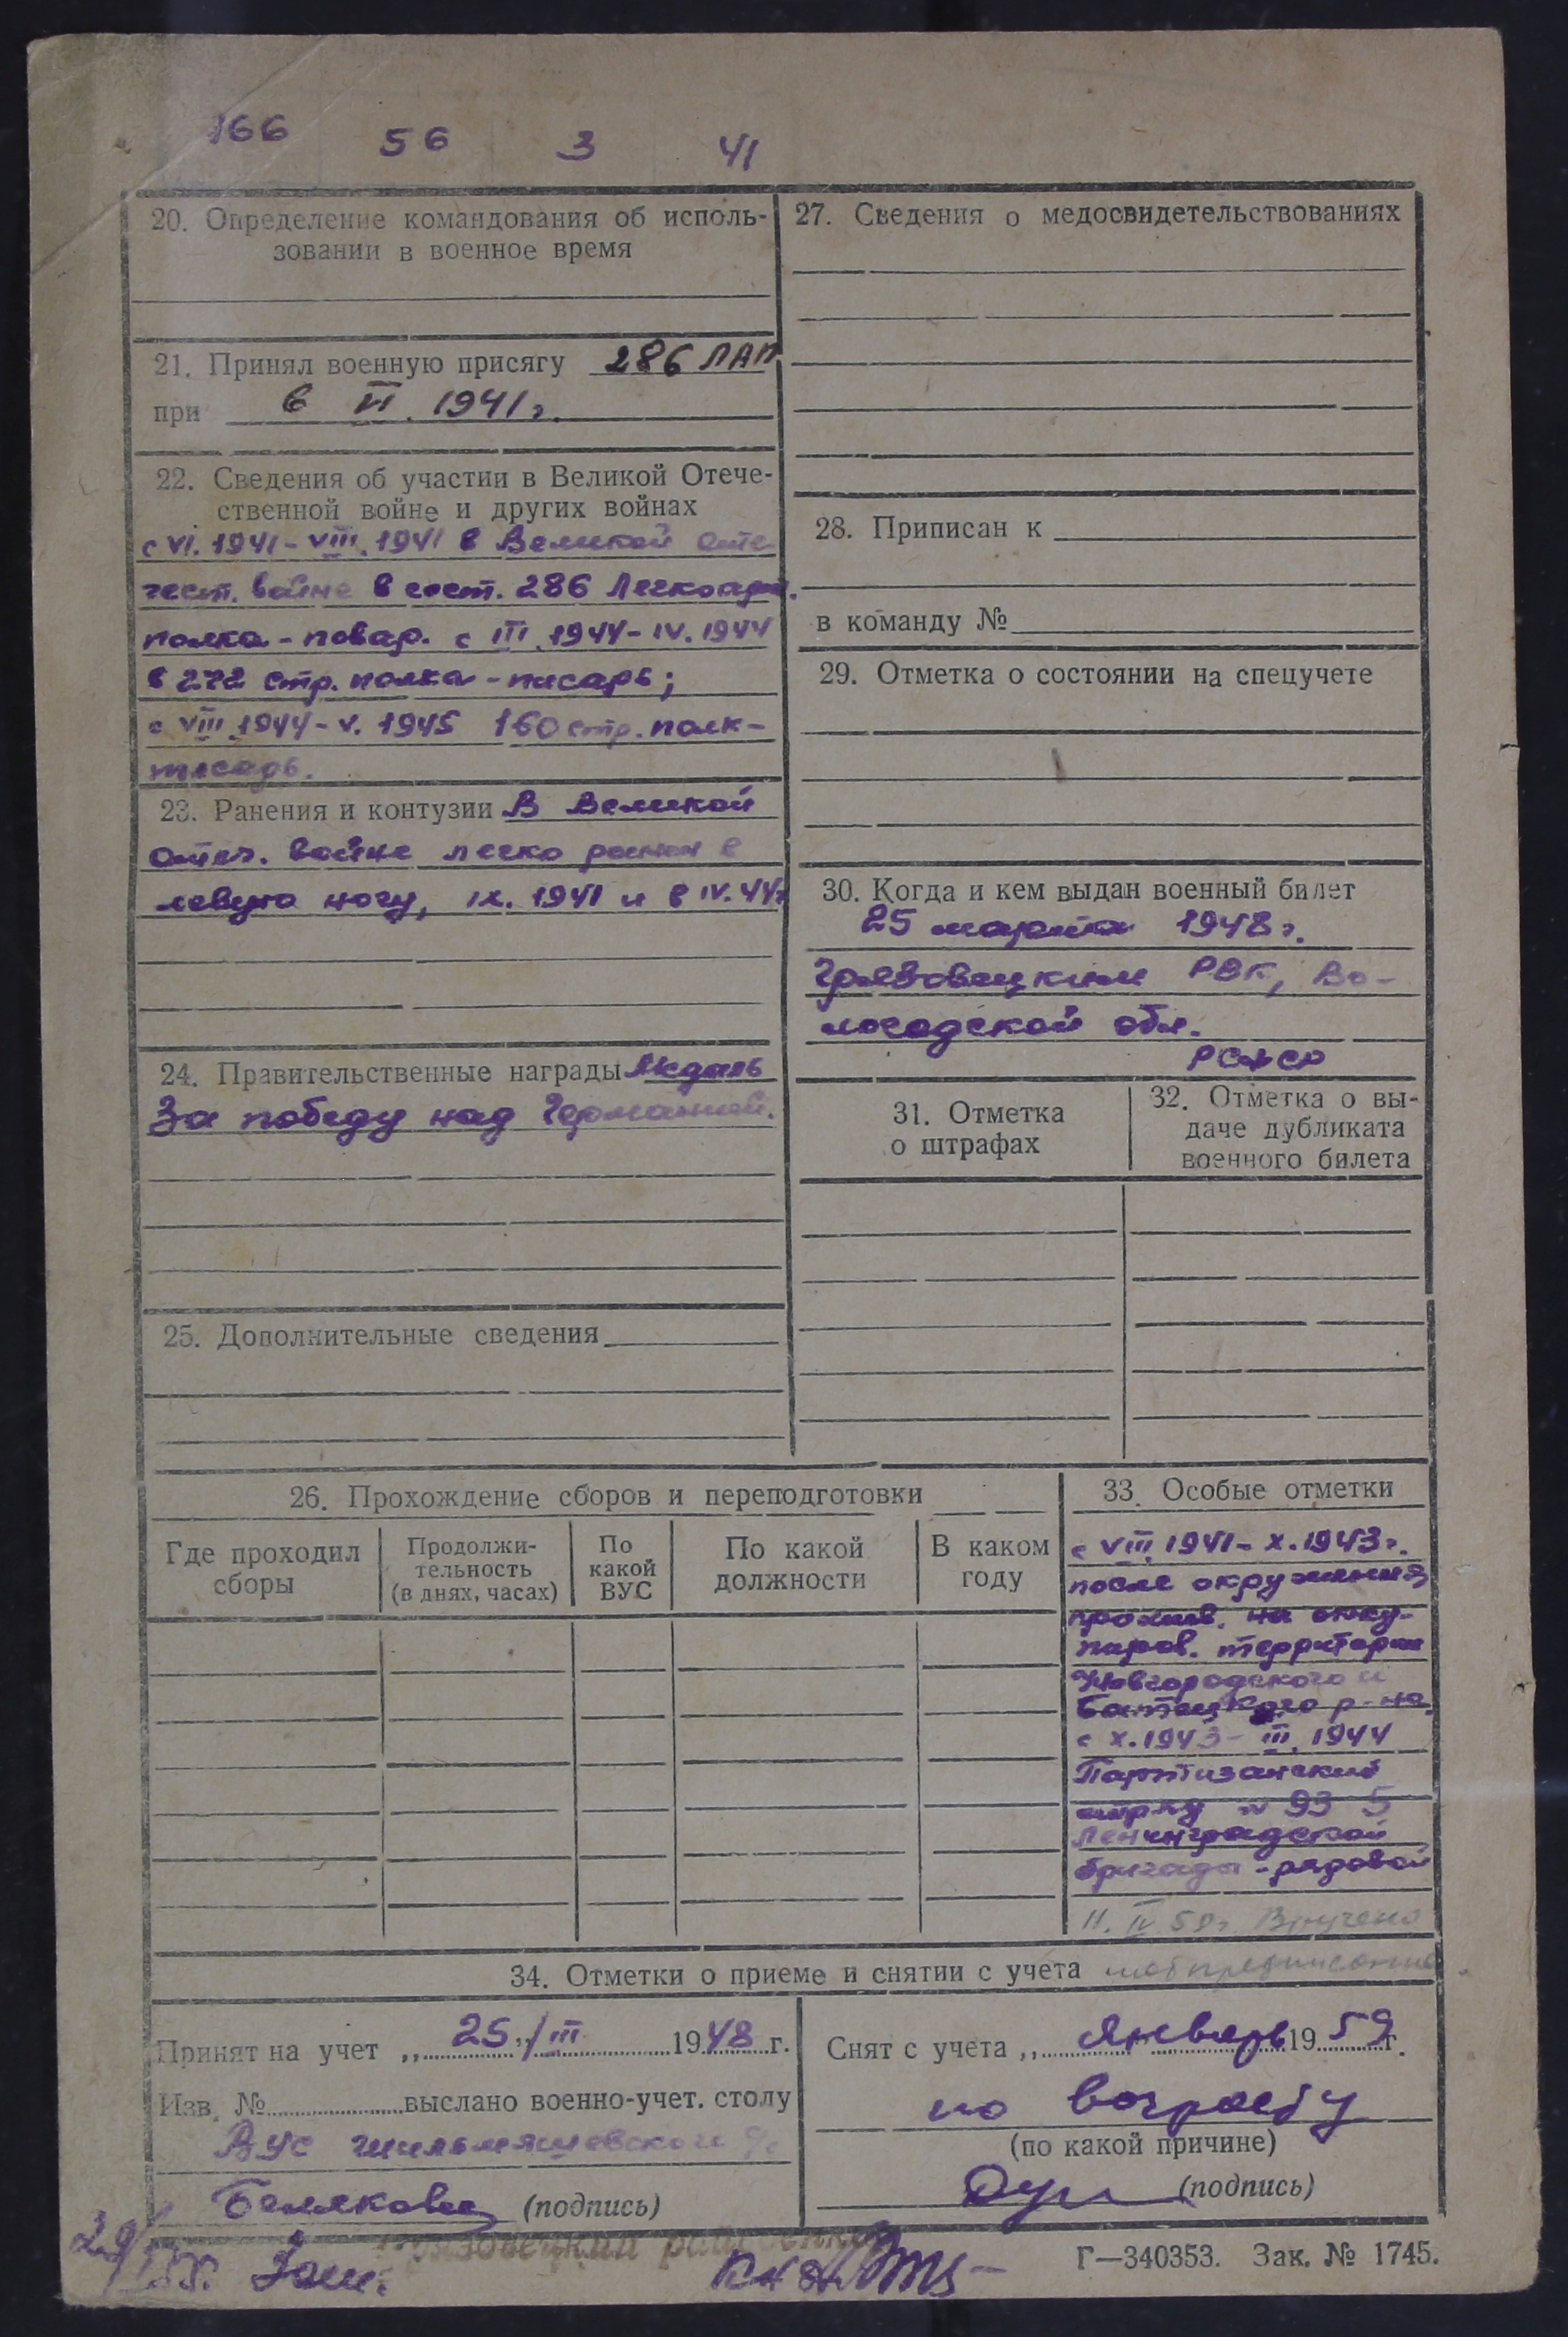 166 56 3 41
20. Определение командования об исполь-
зовании в военное время
21. Принял военную присягу 286 ЛАП
при в VI. 1941 г.
22. Сведения об участии в Великой Отече-
ственной войне и других войнах
с VI. 1941 - VIII. 1941 в Великой Оте-
чест. войне в сост. 286 Легкоарт.
полка - повар. с III. 1944 - IV. 1944
в 272 стр. полка - писарь;
с VIII. 1944 - V. 1945 160 стр. полк -
писарь.
23. Ранения и контузии В Великой
Отеч. войне легко ранен в
левую ногу, IX. 1941 и в IV. 44 г
24. Правительственные награды Медаль
За победу над Германией.
25. Дополнительные сведения
27. Сведения о медосвидетельствованиях
28. Приписан к
в команду №
29. Отметка о состоянии на спецучете
30. Когда и кем выдан военный билет
25 марта 1948 г.
Грязовецким РВК, Во-
логодской обл.
РСФСР
31. Отметка
о штрафах
32. Отметка о вы-
даче дубликата
военного билета
26. Прохождение сборов и переподготовки
Где проходил
сборы
Продолжи-
тельность
(в днях, часах)
По
какой
ВУС
По какой
должности
В каком
году
33. Особые отметки
с VIII. 1941 - X. 1943 г.
после окружения
прожив. на окку-
пиров. территории
Новгородского и
Батецкого р-на.
с X. 1943 - III. 1944
Партизанский
отряд № 93 5
Ленинградской
бригады - рядовой
11. IV 50г. Вручено
мобпредписание
34. Отметки о приеме и снятии с учета
Принят на учет „25" / III 1948 г.
Изв. № выслано военно-учет. столу
ВУС
(подпись)
Снят с учета „ Январь 1959 г.
по возрасту
(по какой причине)
(подпись)
Грязовецкий райвоенком
Г—340353. Зак. № 1745.